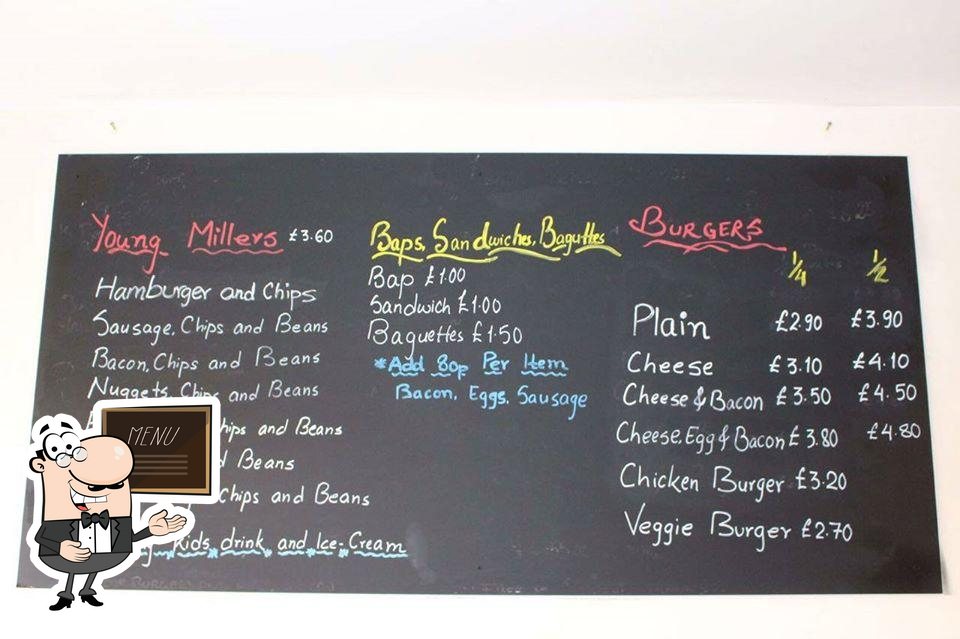 Young Millers £3.60
Hamburger and Chips
Sausage, Chips and Beans
Bacon, Chips and Beans
Nuggets, Chips and Beans
hips and Beans
d Beans
Chips and Beans
kids drink and Ice-Cream
MENU
Baps, Sandwiches, Baguttes
Bap £1.00
Sandwich £1.00
Baguettes £1.50
*Add 80p Per Item
Bacon, Eggs, Sausage
BURGERS
1/4 1/2
Plain £2.90 £3.90
Cheese £3.10 £4.10
Cheese & Bacon £3.50 £4.50
Cheese, Egg & Bacon £3.80 £4.80
Chicken Burger £3.20
Veggie Burger £2.70